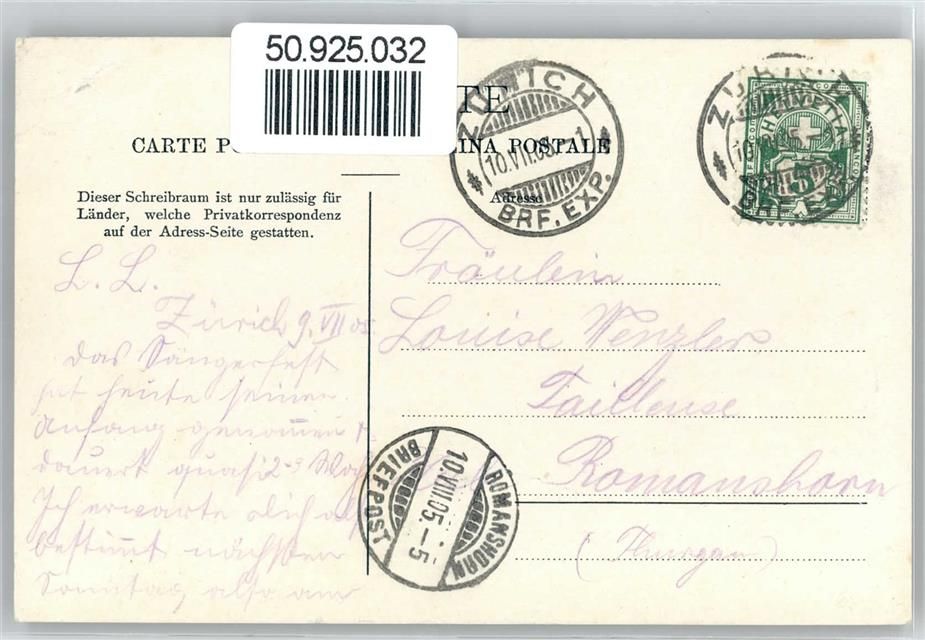 50.925.032
TE
CARTE PO
LINA POSTALE
Dieser Schreibraum ist nur zulässig für
Länder, welche Privatkorrespondenz
auf der Adress-Seite gestatten.
Adresse
ZÜRICH
10.VII.05. 1
BRF. EXP.
ZÜRICH
HELVETIA
5
BRF. EXP.
L. L.
Zürich 9. VII 05
Das Sängerfest
hat heute seinen
Anfang genommen
dauert quasi 2-3
Ich erwarte dich
bestimmt nächsten
Sonntag also am
Fräulein
Louise Wenzler
Tailleuse
Romanshorn
(Thurgau)
ROMANSHORN
10.VIII.05.-5
BRIEFPOST